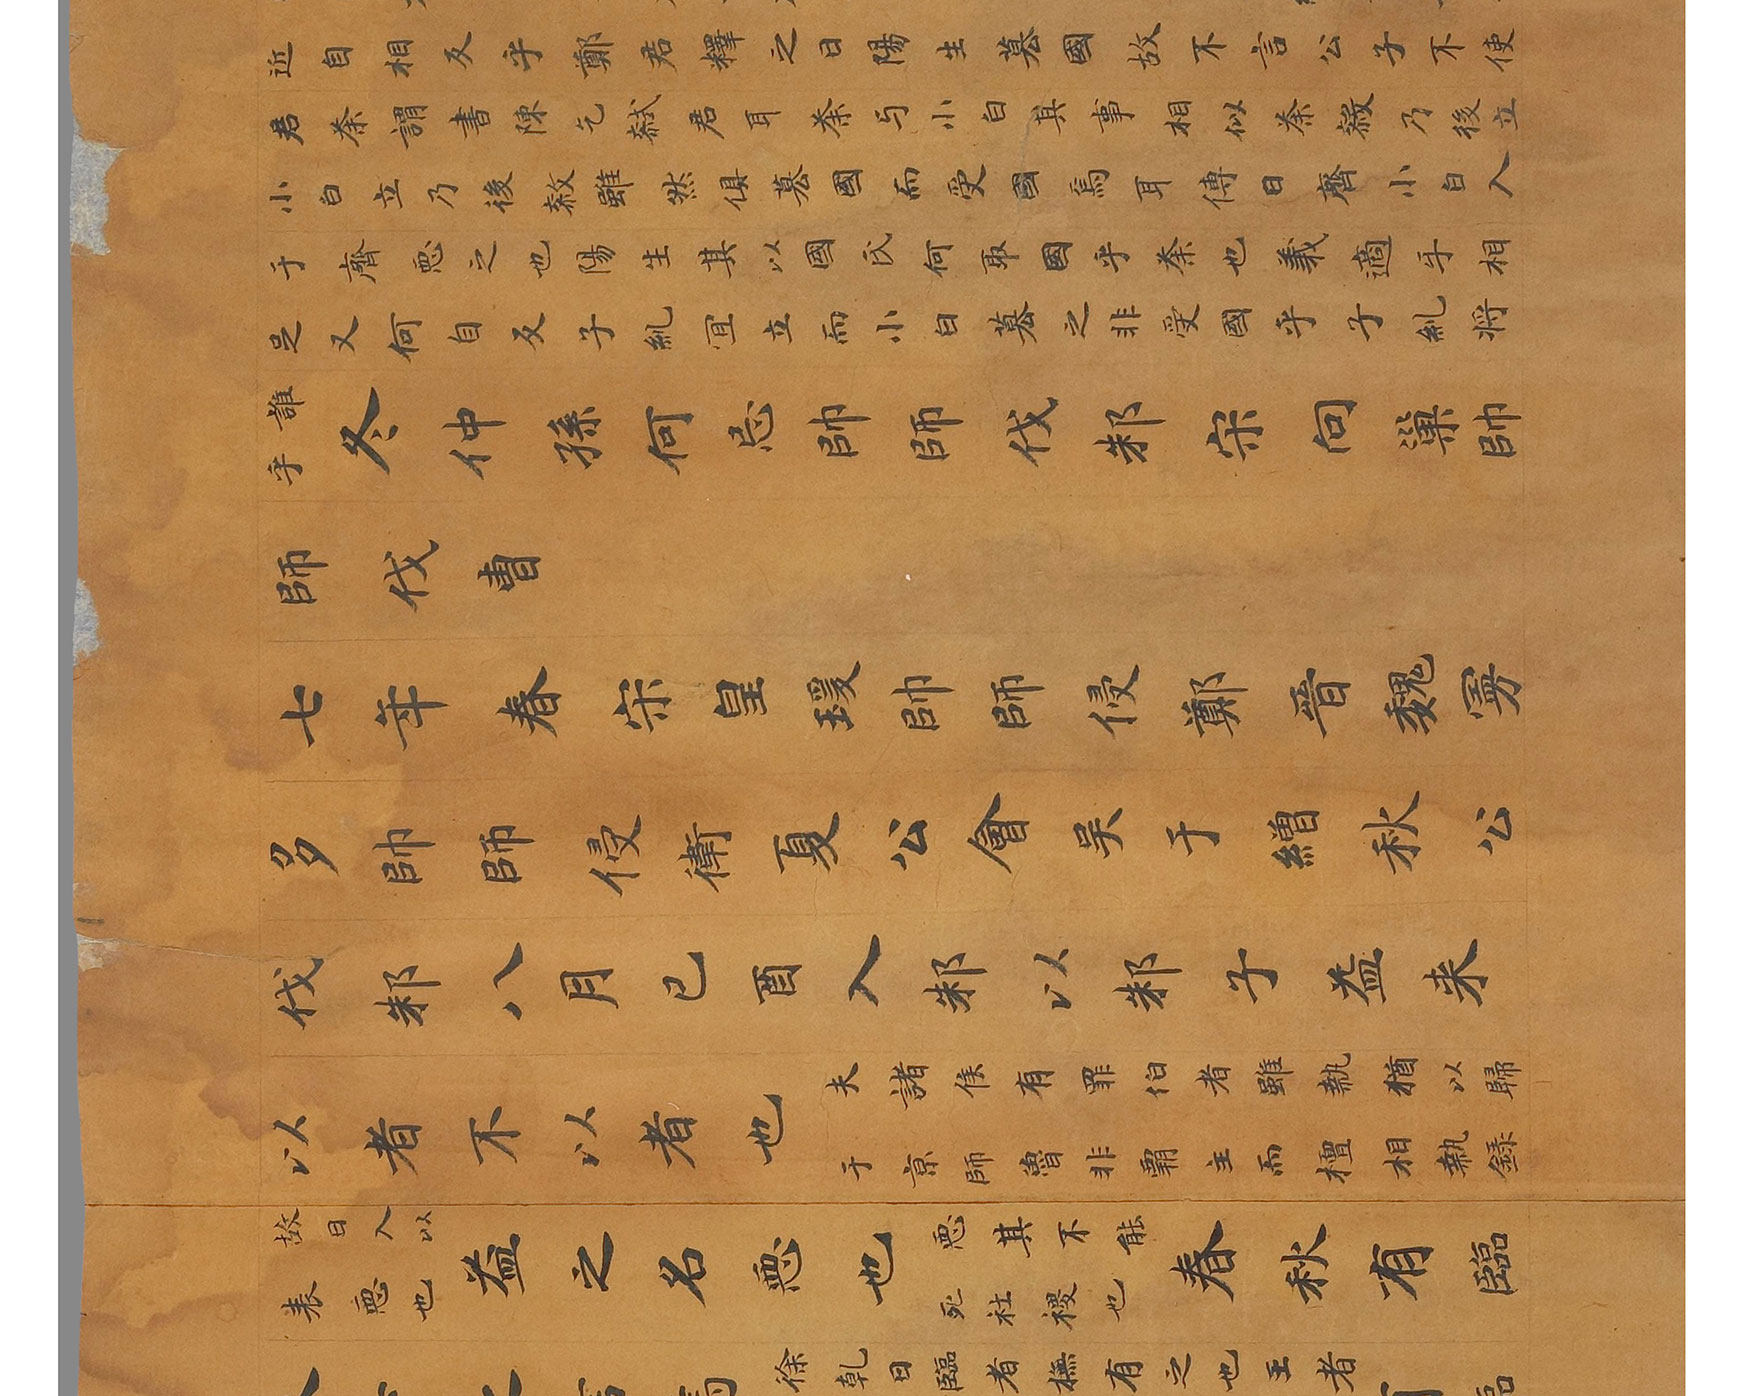 近自相反乎鄭君釋之曰陽生簒國故不言公子不使
君荼謂書陳乞弒君耳荼与小白其事相似荼弒乃後立
小白立乃後弒雖然俱簒國而受國焉耳傳曰齊小白入
于齊惡之也陽生其以國氏何取國乎荼也義適乎相
足又何自反子糾宜立而小白簒之非受國乎子糾將
誰乎冬仲孫何忌帥師伐邾宋向巢帥
師伐曹
七年春宋皇瑗帥師侵鄭晉魏曼
多帥師侵衛夏公會吳于繒秋公
伐邾八月己酉入邾以邾子益来
以者不以者也夫諸侯有罪伯者雖執猶以歸于京師魯非霸主而擅相執録
故曰入以表惡也益之名惡也惡其不能死社稷也春秋有臨
徐乾曰臨者撫有之也王者